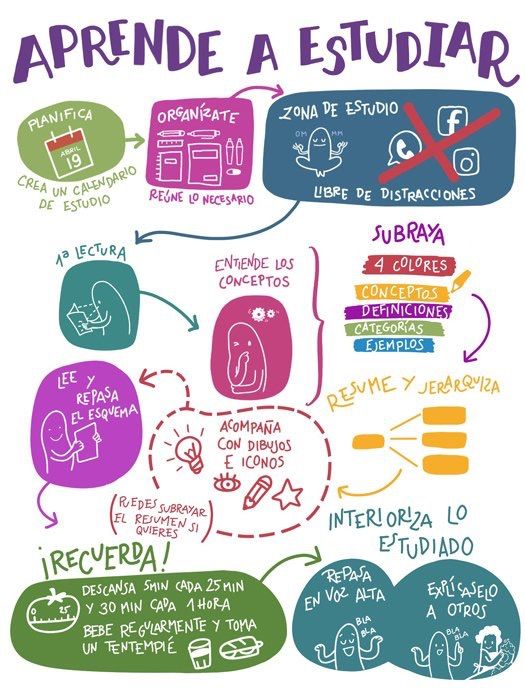 APRENDE A ESTUDIAR
PLANIFICA
ABRIL
19
CREA UN CALENDARIO
DE ESTUDIO
ORGANÍZATE
REÚNE LO NECESARIO
ZONA DE ESTUDIO
OM MM
LIBRE DE DISTRACCIONES
1ª LECTURA
ENTIENDE LOS
CONCEPTOS
SUBRAYA
4 COLORES
CONCEPTOS
DEFINICIONES
CATEGORÍAS
EJEMPLOS
RESUME Y JERARQUIZA
ACOMPAÑA
CON DIBUJOS
E ICONOS
(PUEDES SUBRAYAR
EL RESUMEN SI
QUIERES)
LEE Y
REPASA
EL ESQUEMA
¡RECUERDA!
25
DESCANSA 5MIN CADA 25 MIN
Y 30 MIN CADA 1 HORA
BEBE REGULARMENTE Y TOMA
UN TENTEMPIÉ
INTERIORIZA LO
ESTUDIADO
REPASA
EN VOZ ALTA
BLA
BLA
EXPLÍCASELO
A OTROS
BLA
BLA